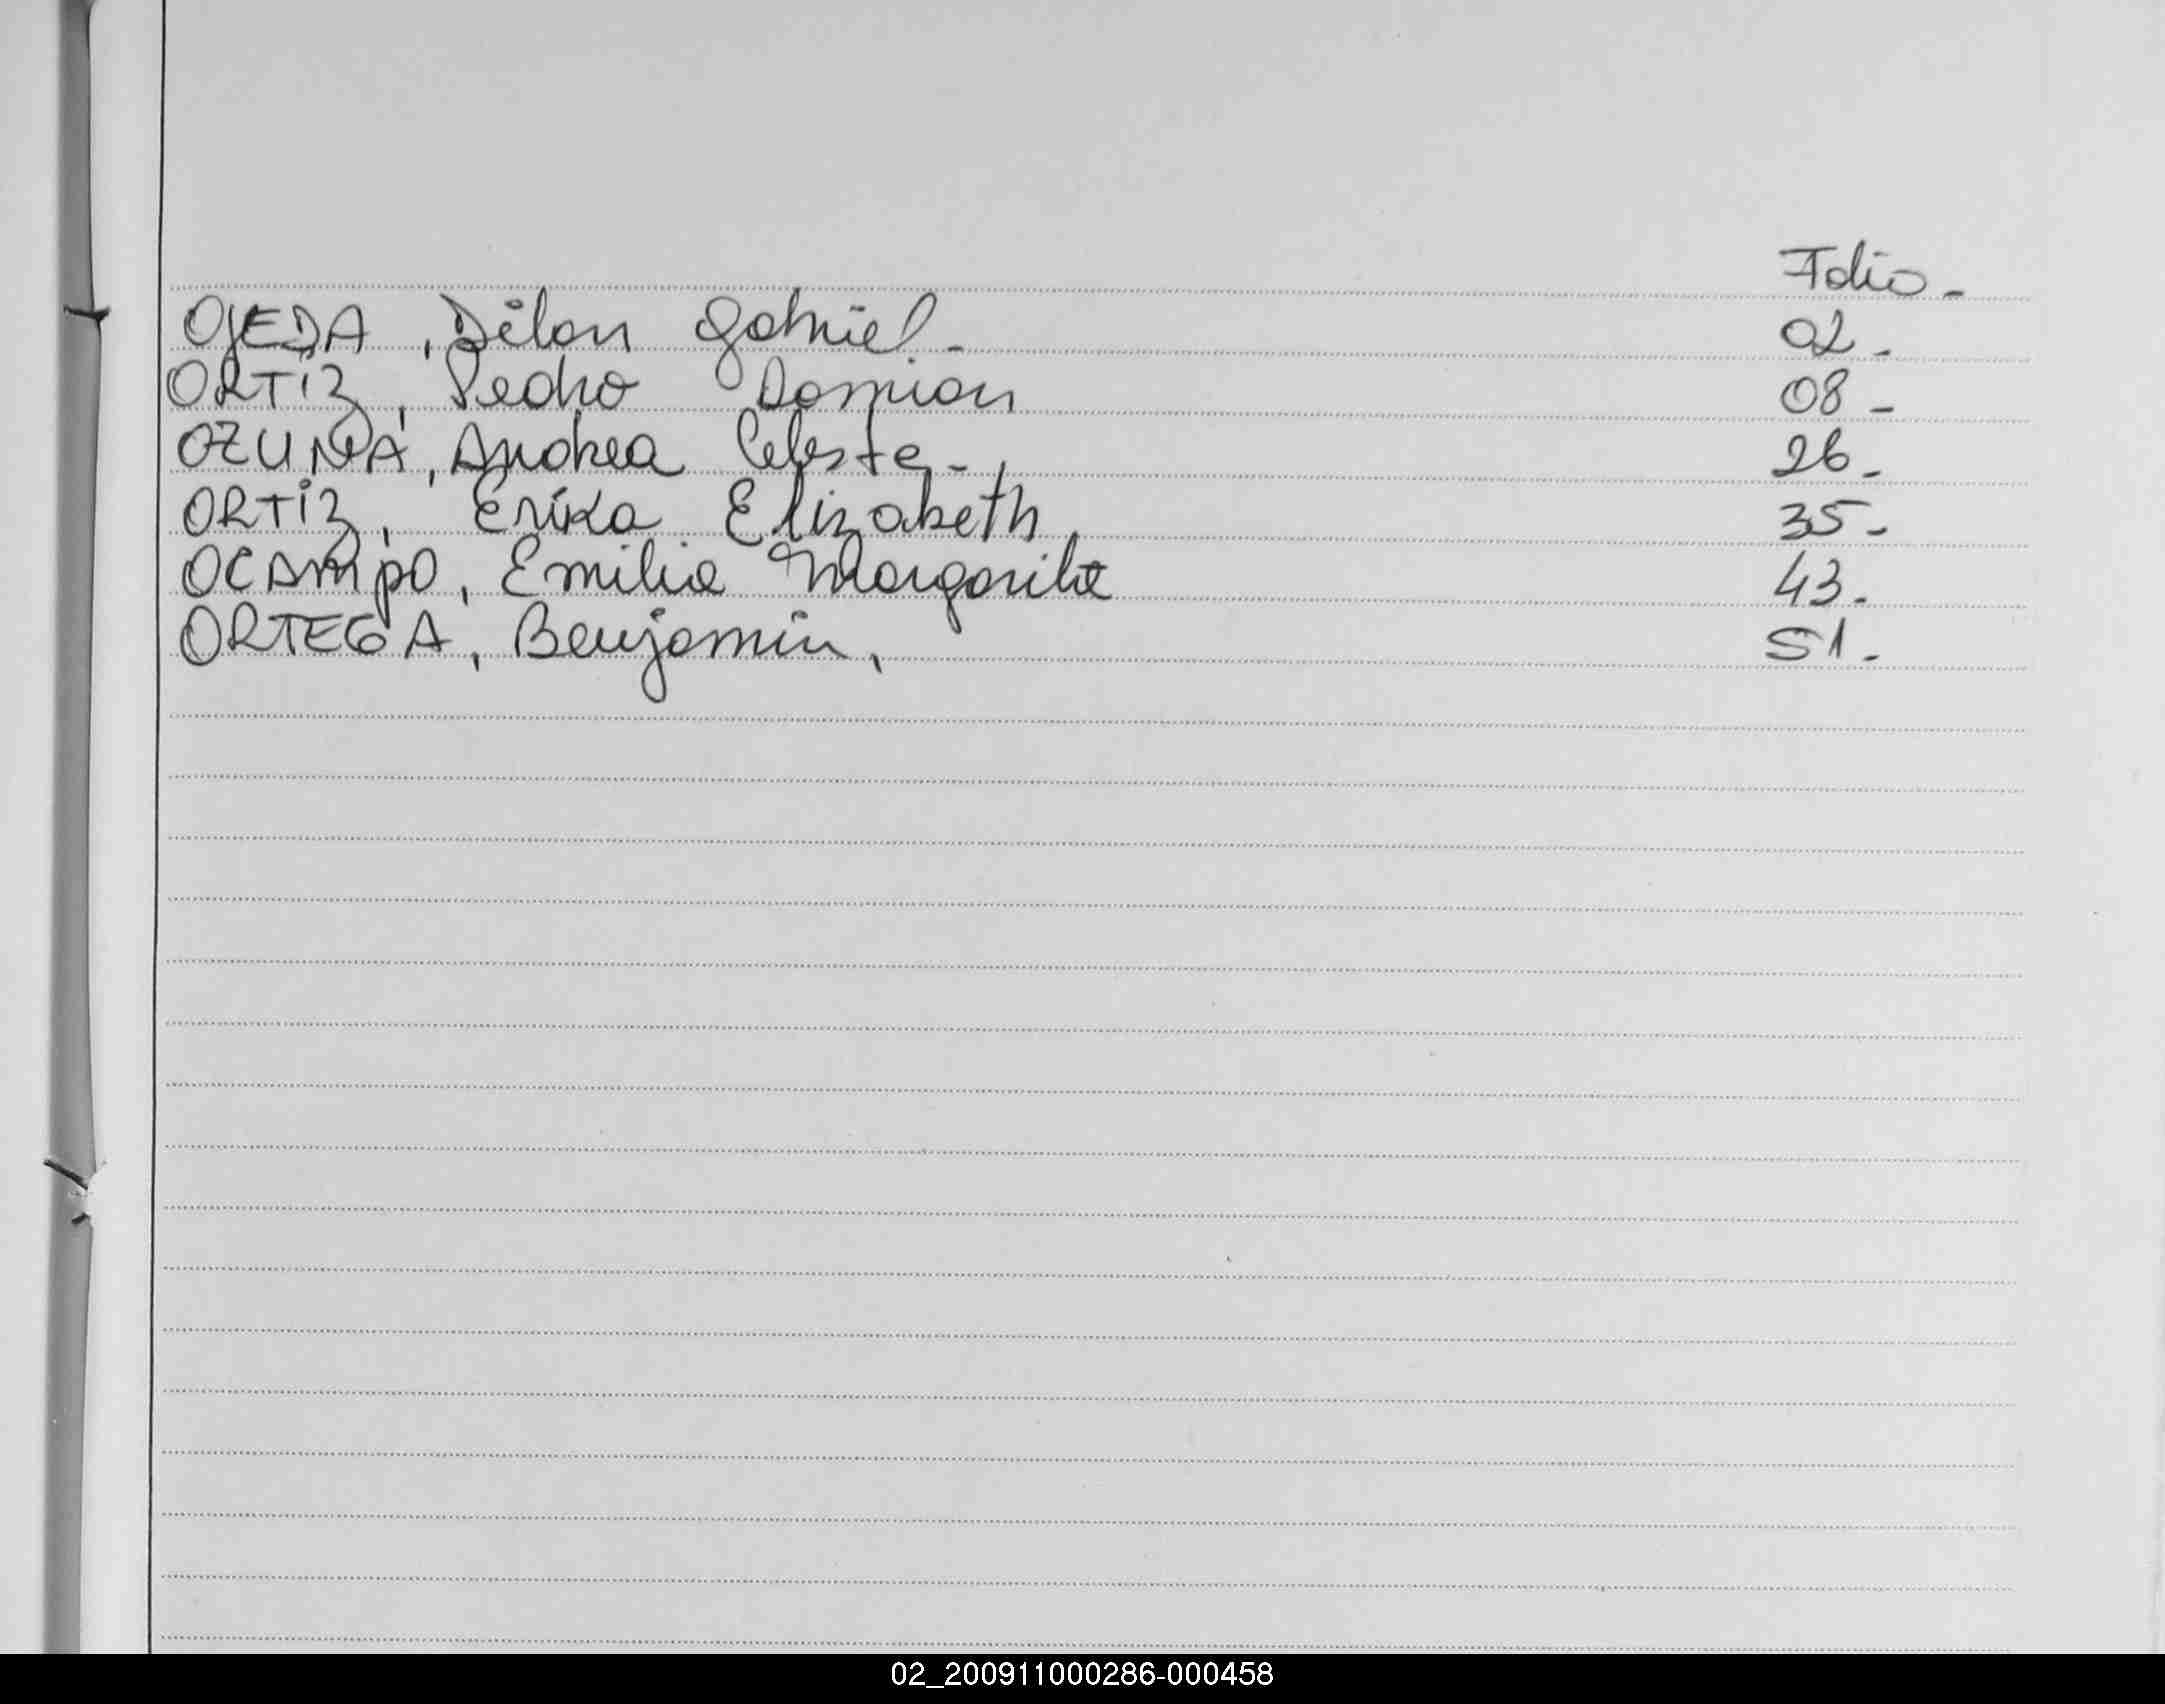 Folio -
OJEDA, Dilan Gabriel - 02 -
ORTIZ, Pedro Damian 08 -
OZUNA, Andrea Celeste - 26 -
ORTIZ, Erika Elizabeth 35 -
OCAMPO, Emilia Margarita 43 -
ORTEGA, Benjamin, 51 -
02_200911000286-000458